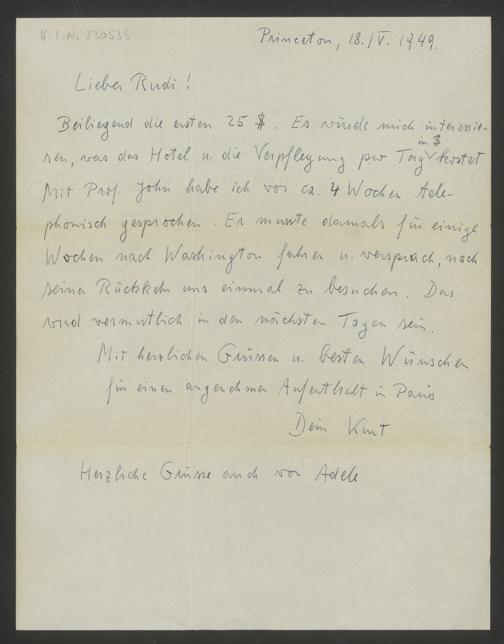 H.I.N. 230535
Princeton, 18./V. 1949.
Lieber Rudi!
Beiliegend die ersten 25 $. Es würde mich interessie-
ren, was das Hotel u. die Verpflegung pro Tag in $ kostet.
Mit Prof. John habe ich vor ca. 4 Wochen tele-
phonisch gesprochen. Er musste damals für einige
Wochen nach Washington fahren u. versprach, nach
seiner Rückkehr uns einmal zu besuchen. Das
wird vermutlich in den nächsten Tagen sein.
Mit herzlichen Grüssen u. besten Wünschen
für einen angenehmen Aufenthalt in Paris
Dein Kurt
Herzliche Grüsse auch von Adele